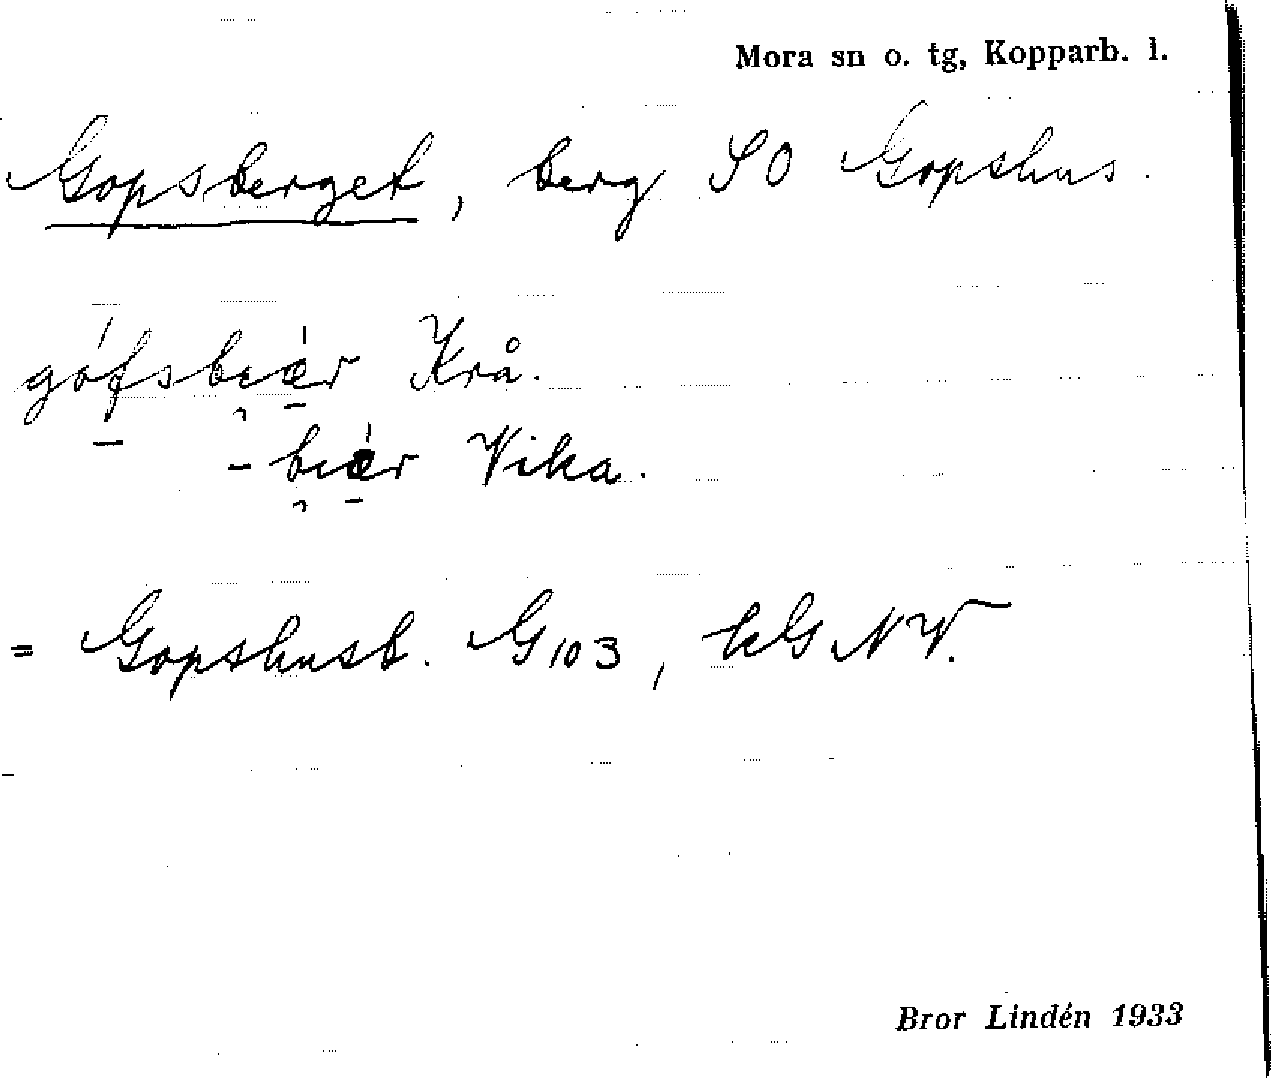 Mora sn o. tg, Kopparb. l.
Gopsberget, berg SO Gopshus.
gófsbiér Krå.
- biér Vika.
= Gopshusb. G103, kGNV.
Bror Lindén 1933